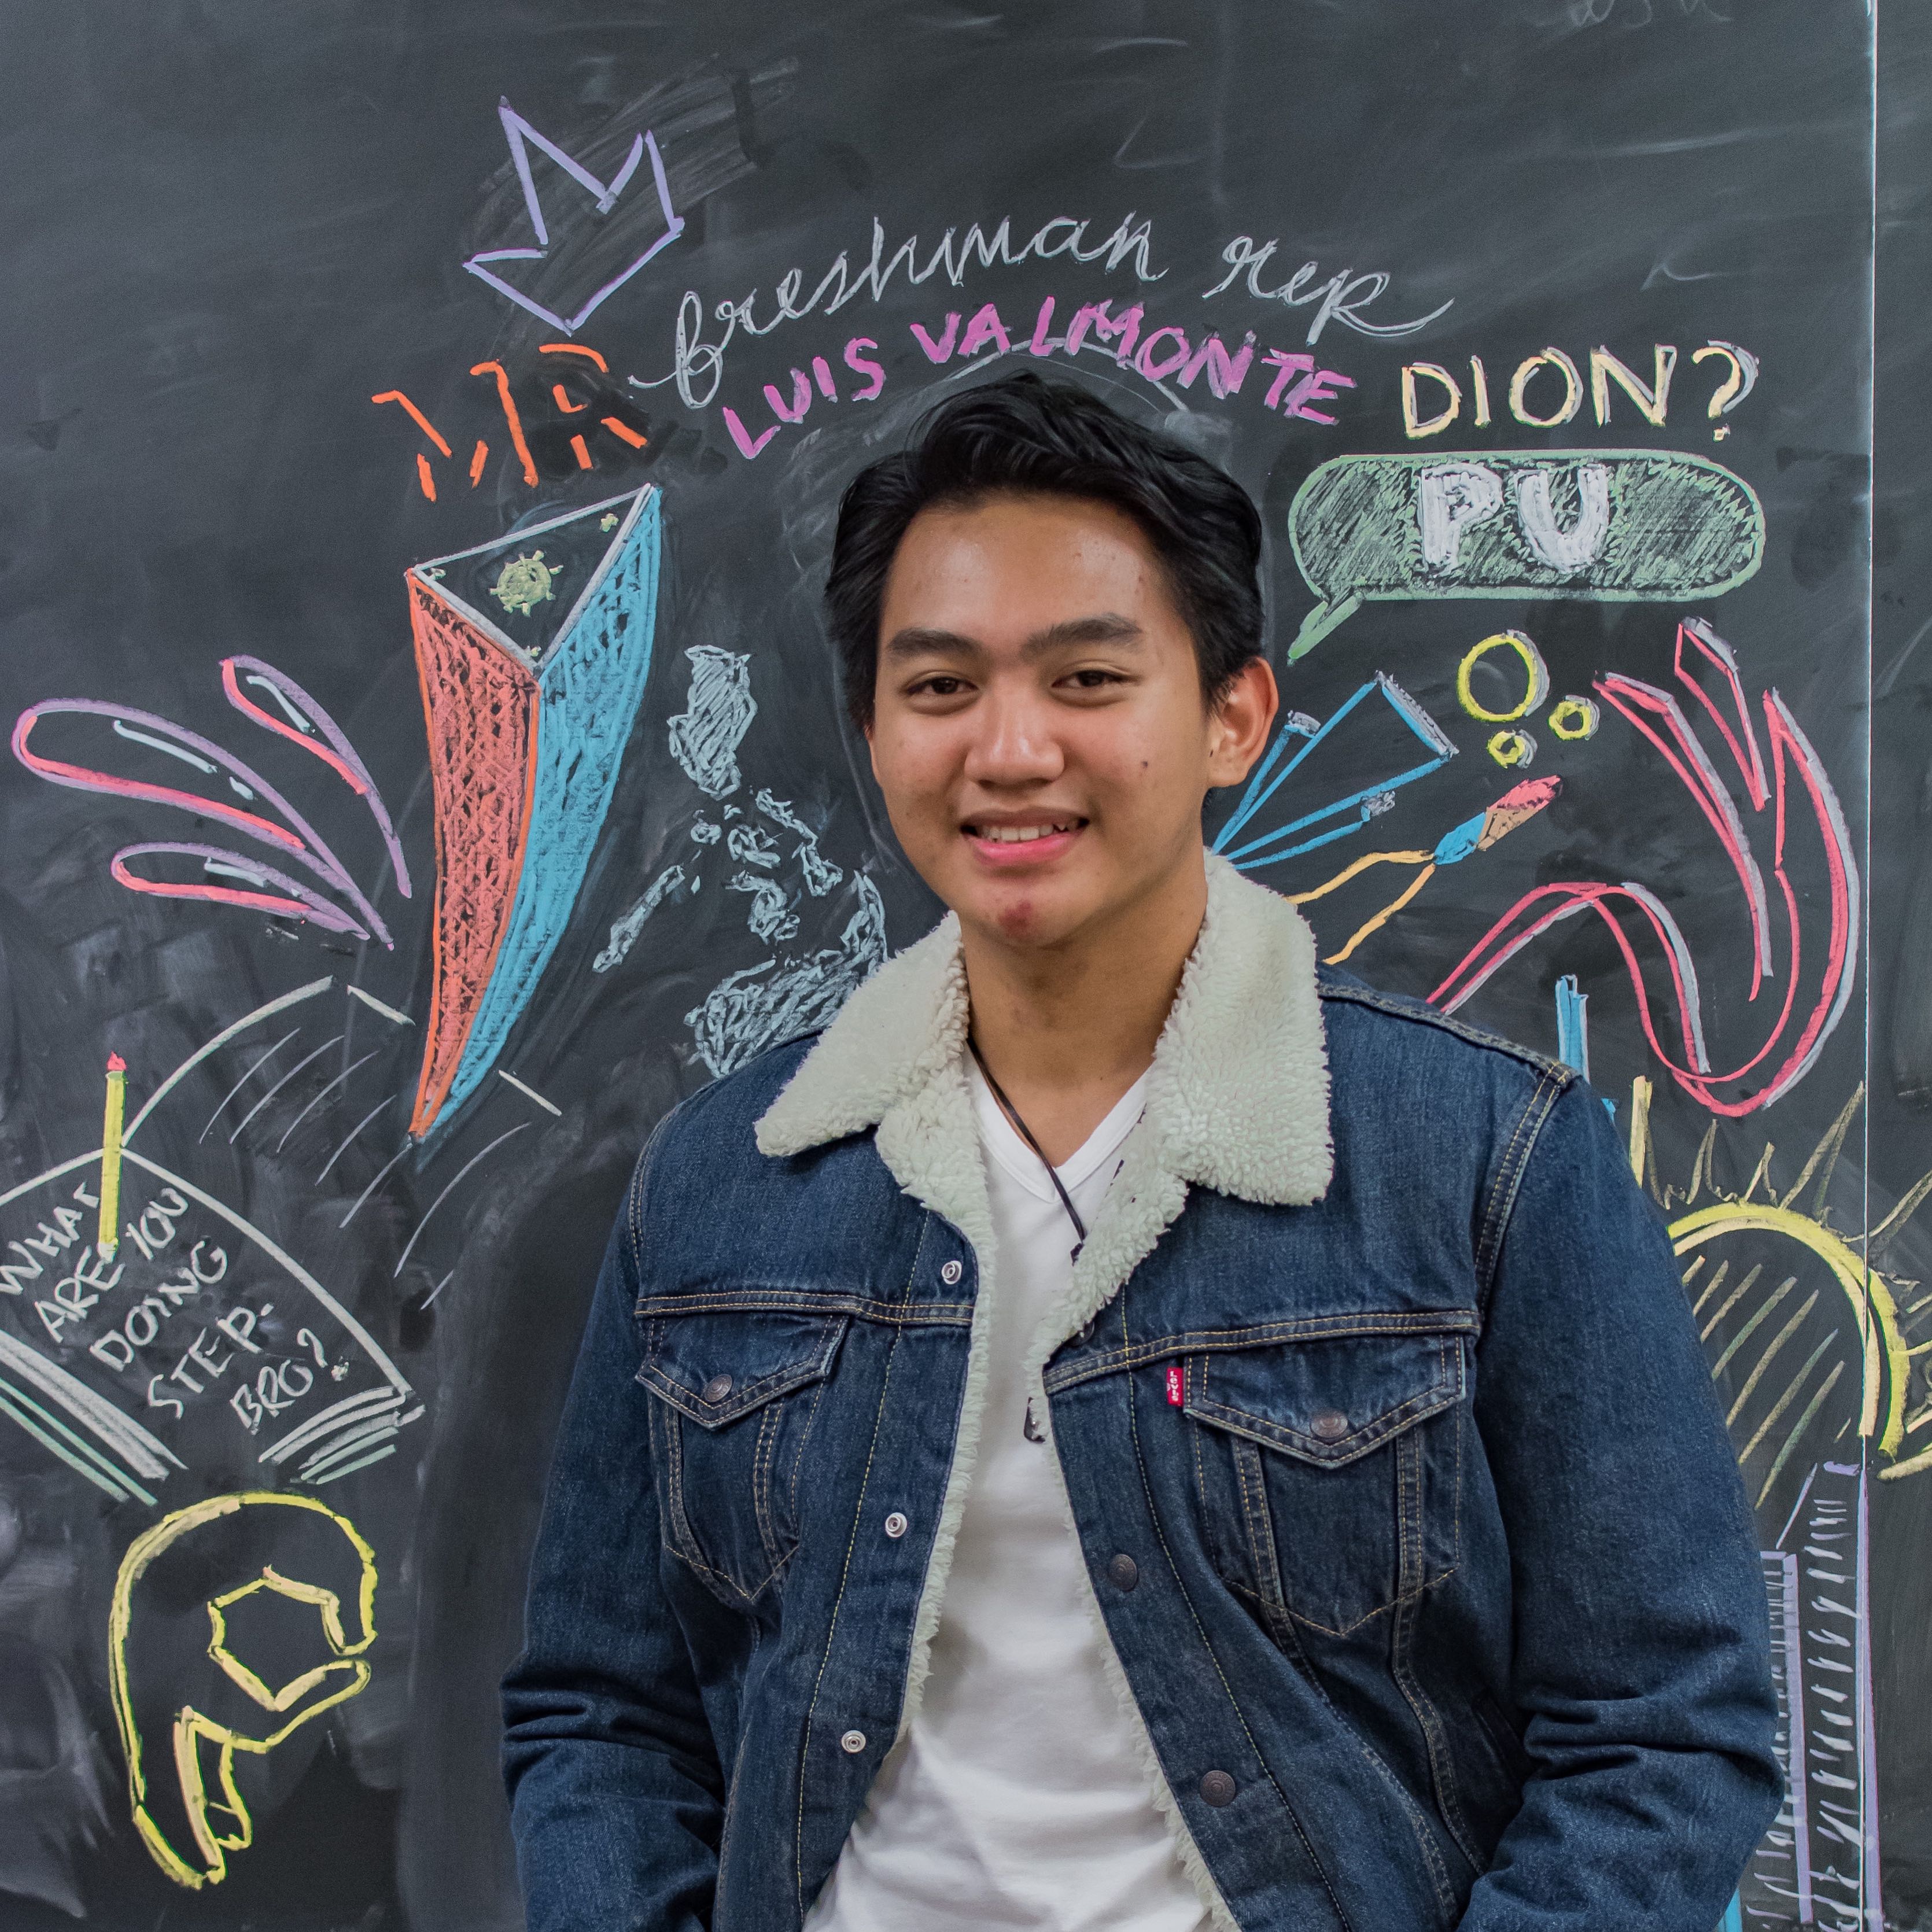 freshman rep
LUIS VALMONTE
MR
DION?
PU
WHAT
ARE YOU
DOING
STEP-
BRO?
Levi's